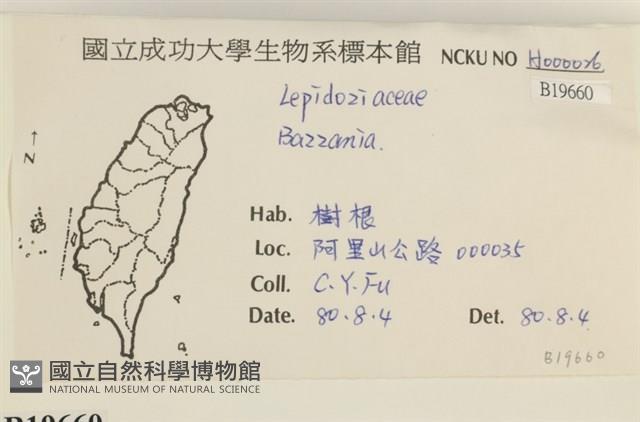 國立成功大學生物系標本館 NCKU NO H000026
B19660
Lepidoziaceae
Bazzania.
N
Hab. 樹根
Loc. 阿里山公路 000035
Coll. C.Y.Fu
Date. 80.8.4 Det. 80.8.4
B19660
國立自然科學博物館
NATIONAL MUSEUM OF NATURAL SCIENCE
B19660